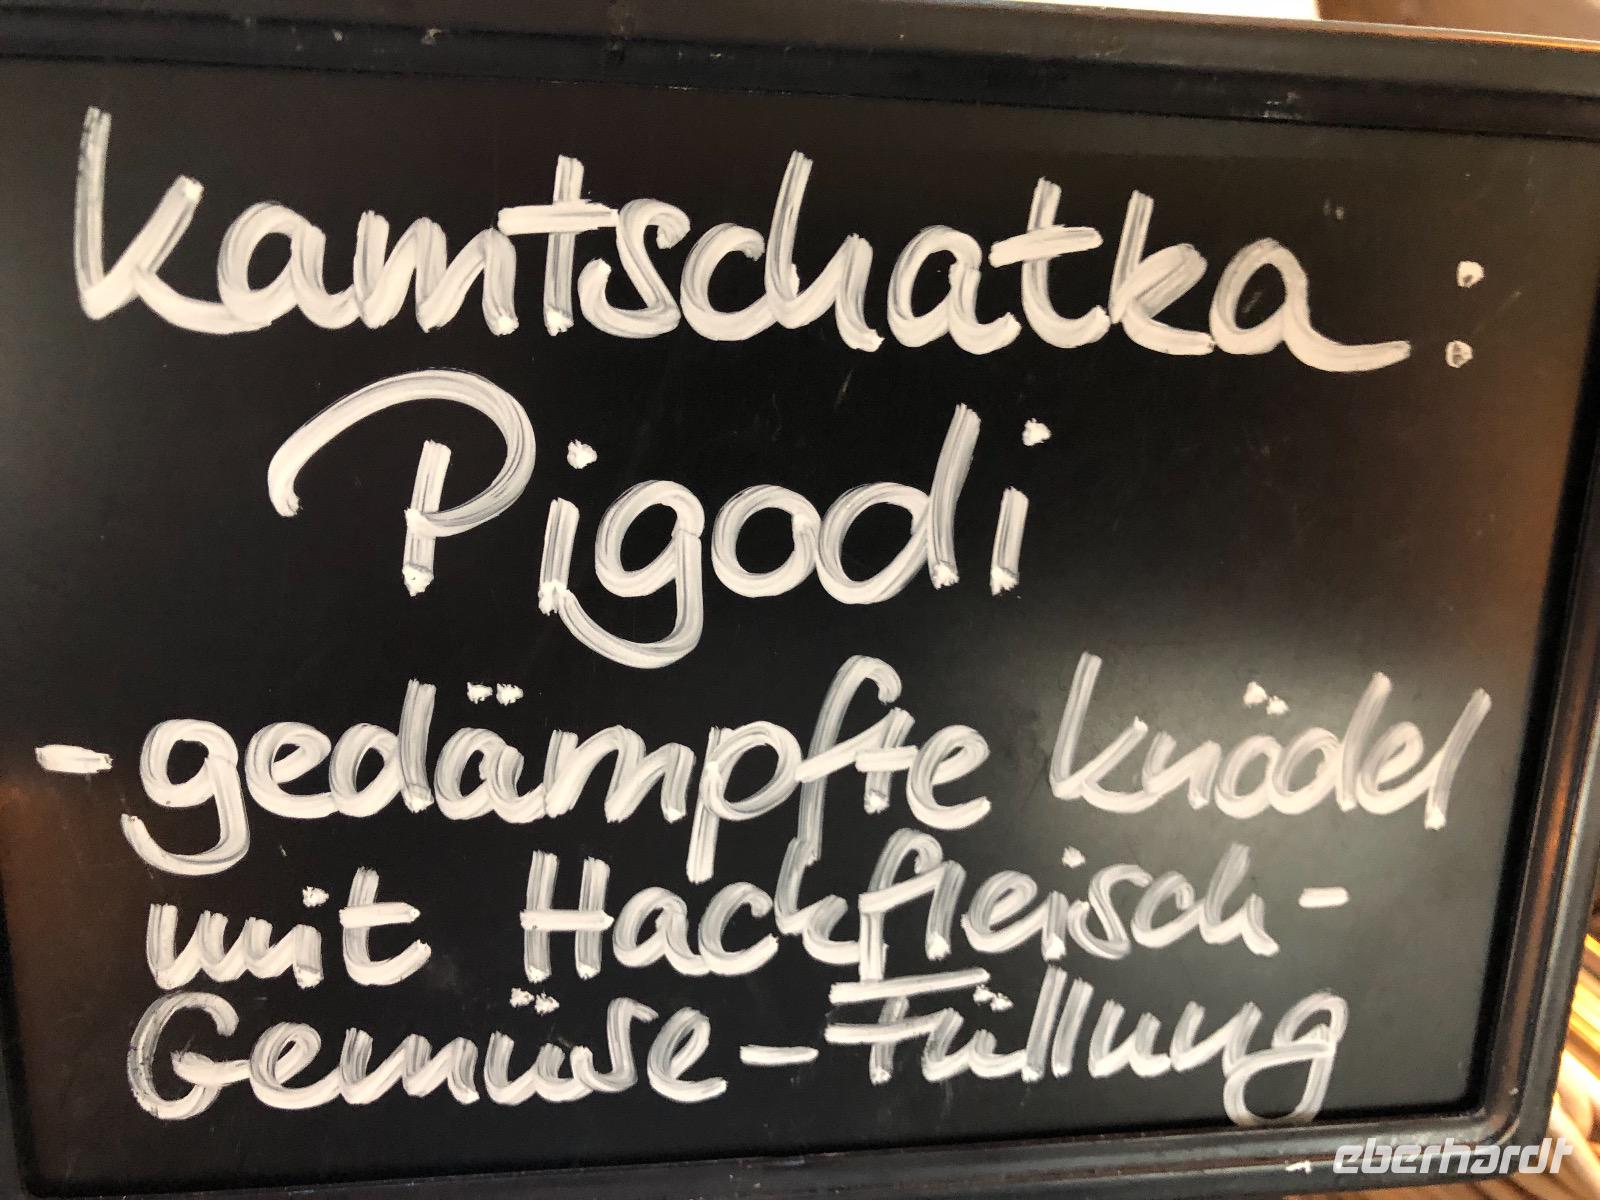 Kamtschatka:
Pigodi
- gedämpfte Knödel
mit Hackfleisch-
Gemüse-Füllung
eberhardt